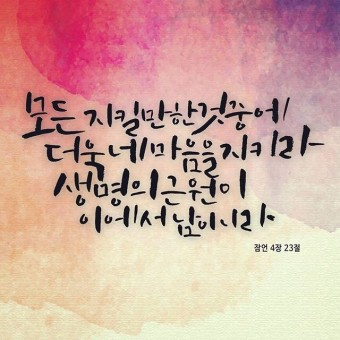 모든 지킬만한것중에
더욱 네 마음을 지키라
생명의 근원이
이에서 남이니라
잠언 4장 23절